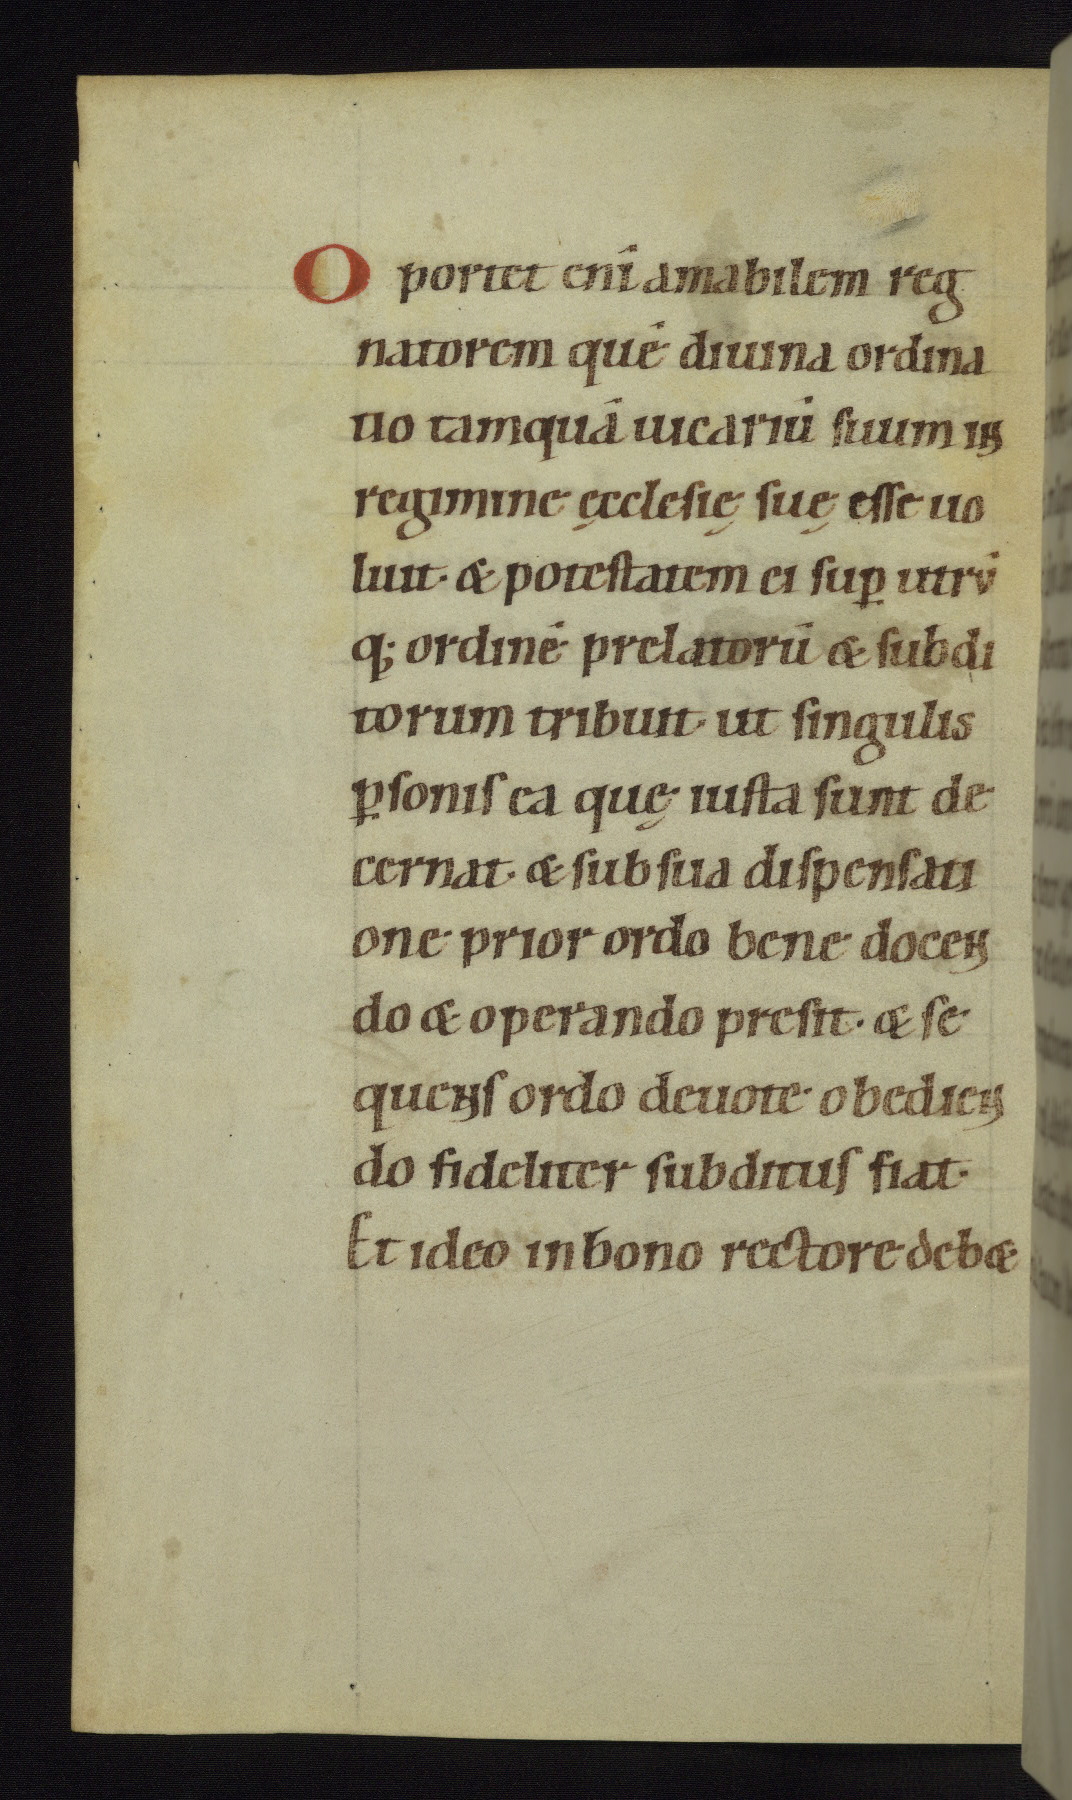 Oportet enī amabilem reg
natorem quē diuina ordina
tio tamquā uicariū suum in
regimine ęcclesię suę esse uo
luit. & potestatem ei suꝑ utrū
q; ordinē prelatorū & subdi
torum tribuit. ut singulis
ꝑsonis ea quę iusta sunt de
cernat. & sub sua dispensati
one prior ordo bene docen
do & operando presit. & se
quens ordo deuote obedien
do fideliter subditus fiat.
Et ideo in bono rectore deb&